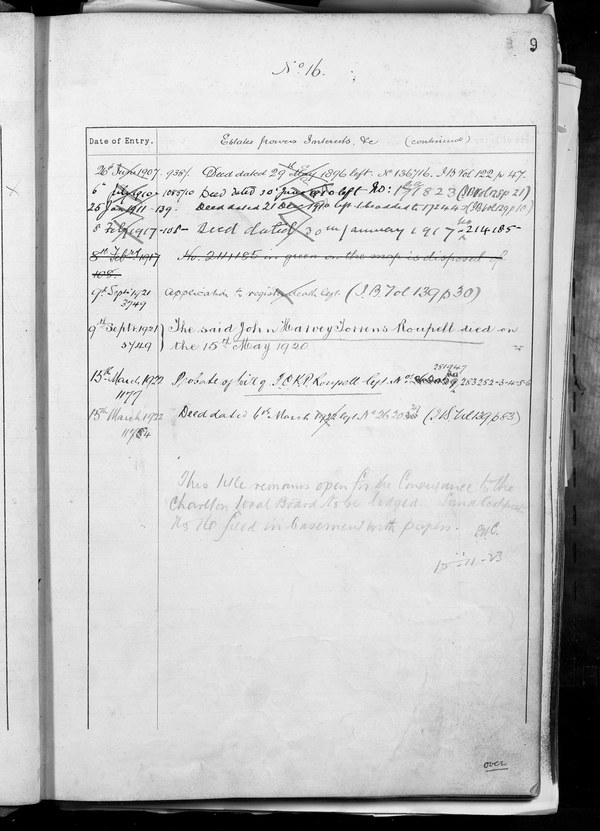 9
No. 16.
Date of Entry. Estates powers Interests, &c (continued)
26th June 1907. 938/7. Deed dated 29th May 1896 left. No 136716. I B Vol 122 p 47.
6th July 1910 1085/10 Deed dated 30th June left No: 1823 (I B Vol 128 p 21)
25 Jan 1911 - 139. Deed dated 21 Dec 1910 left & added to 17244 (I B Vol 129 p 10)
8 Feby 1917 - 108 - Deed dated 30th January 1917 214185
8th Feby 1917 No. 2141185 in green on the map is disposed of
108.
9th Septr 1921 Application to register death left (I. B. Vol 139 p 30)
3749
9th Septr 1921 The said John Harvey Torrens Roupell died on
3749 the 15th May 1920
251947
15th March 1922 Probate of will of J.H.T. Roupell left. No. 253252-3-4-5-6
1177
15th March 1922 Deed dated 6th March 1922 left No 26203 (I B Vol 139 p 83)
1178
This title remains open for the Conveyance to the
Charlton Local Board to be lodged. Land Certificate
No 16 filed in basement with papers. EHC.
15-11-23
over